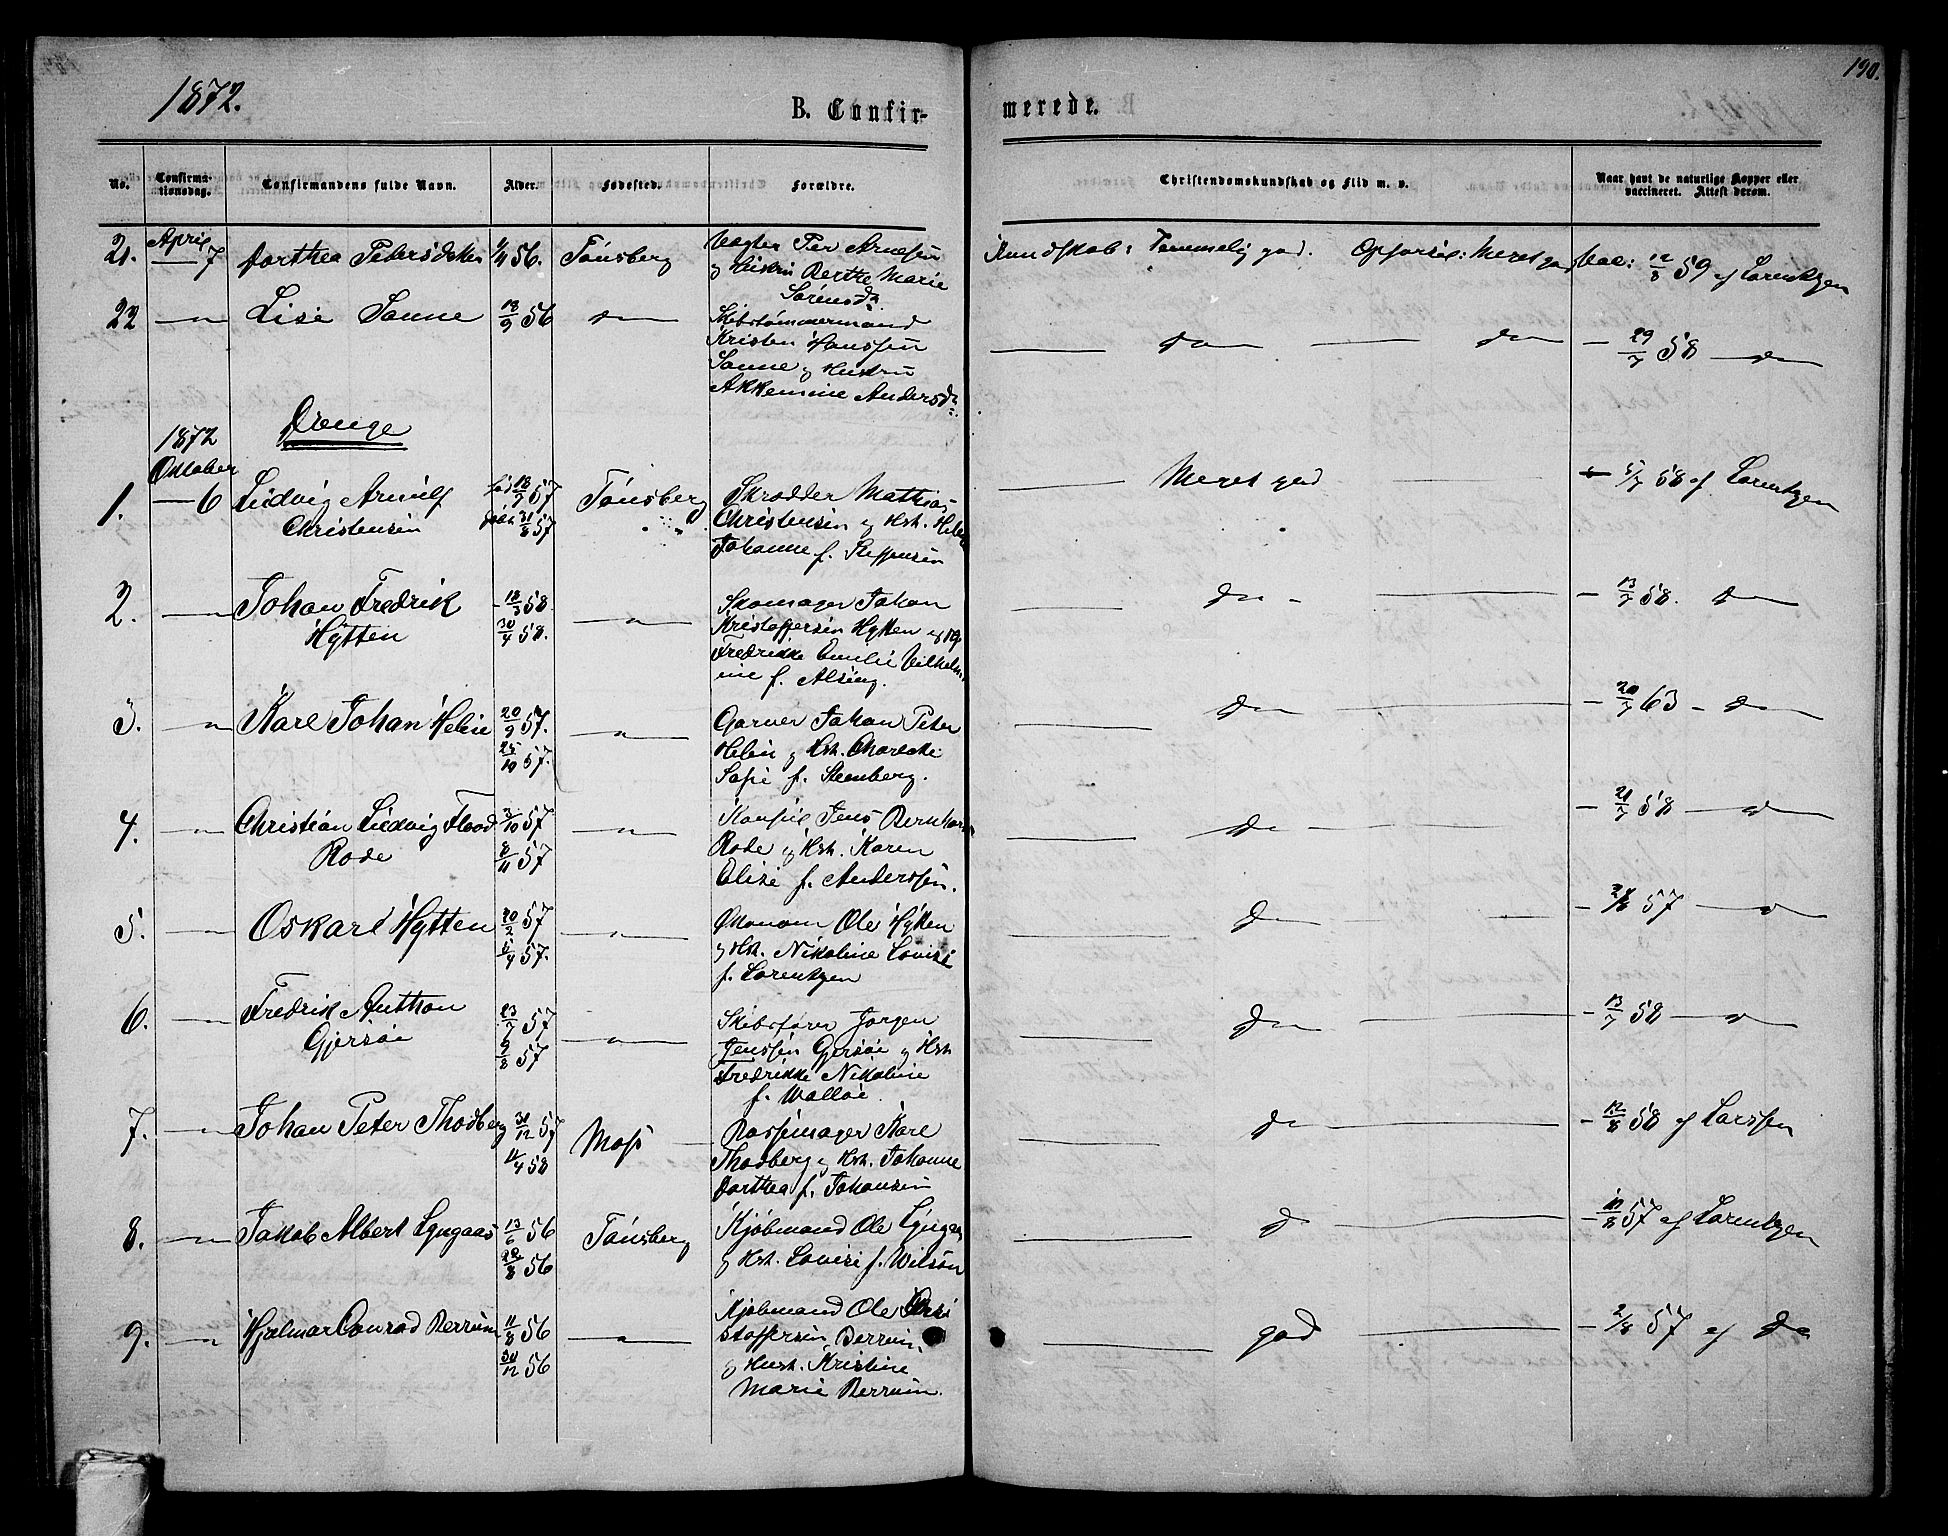 1872.
190.
B. Confir-
merede.
No.
Confirma-
tionsdag.
Confirmandens fulde Navn.
Alder.
Fødested.
Forældre.
Christendomskundskab og Flid m. v.
Naar havt de naturlige Kopper eller
vaccineret. Attest derom.
21. April 7 Dorthea Pedersdatter 56. Tönsberg
Per Arnesen
og Hustru Berthe Marie
Sörensd.
Kundskab: Temmelig god. Opførsel: Meget god Vac: 12/8 59 af Lorentzen
22 —"— Lise Sanne 18/9 56 do
Skibstømmermand
Kristen Hanssen
Sanne og Hustru
Andersd.
do do — 29/7 58 — do
Drenge
1872
Oktober
1. — 6 Ludvig Arnulf
Christensen
18/7 57
døbt 31/8 57
Tönsberg
Skrædder Mathias
Christensen og Hst. Helene
Johanne f. Steffensen
Meget god 5/7 58 af Lorentzen
2. —"— Johan Fredrik
Hytten
18/3 58
30/4 58.
—"—
Skomager Johan
Kristoffersen Hytten og
Fredrikke Emilie Vilhelm
ine f. Alsing.
do — 13/7 58. do
3. —"— Karl Johan Helin
20/9 57.
25/10 57.
—"—
Garver Johan Peter
Helin og Hst. Charlotte
Sofie f. Steenberg.
do — 20/7 63 — do
4. —"— Christian Ludvig Flood
Rode
3/10 57
8/11 57
—"—
Konsul Jens Bernhard
Rode og Hst. Karen
Elise f. Anderssen.
do — 21/7 58 — do
5. —"— Oskar Hytten
20/2 57
5/4 57.
—"—
Økonom Ole Hytten
og Hst. Nikoline Lovise
f. Lorentzen
do — 57 — do
6. —"— Fredrik Anthon
Gjersøe
23/7 57
9/8 57
—"—
Skibsfører Jørgen
Jenssen Gjersøe og Hst
Fredrikke Nikoline
f. Walløe.
do — 13/7 58 — do
7. —"— Johan Peter Thodberg
31/12 57
11/4 58
Moss
Karl
Thodberg og Hst. Johanne
Dorthea f. Johansen
do — 12/8 58 af Larssen
8. —"— Jakob Albert Lyngaas
13/6 56
22/8 56
Tönsberg
Kjøbmand Ole Lyngaas
og Hst. Lovise f. Wilson
do — 57 af Lorentzen
9. —"— Hjalmar Conrad Berrum
11/8 56
30/12 56
—"—
Kjøbmand Ole Kri
stoffersen Berrum,
og Hust. Kristine
Marie Berrum.
god — 2/8 57 af do